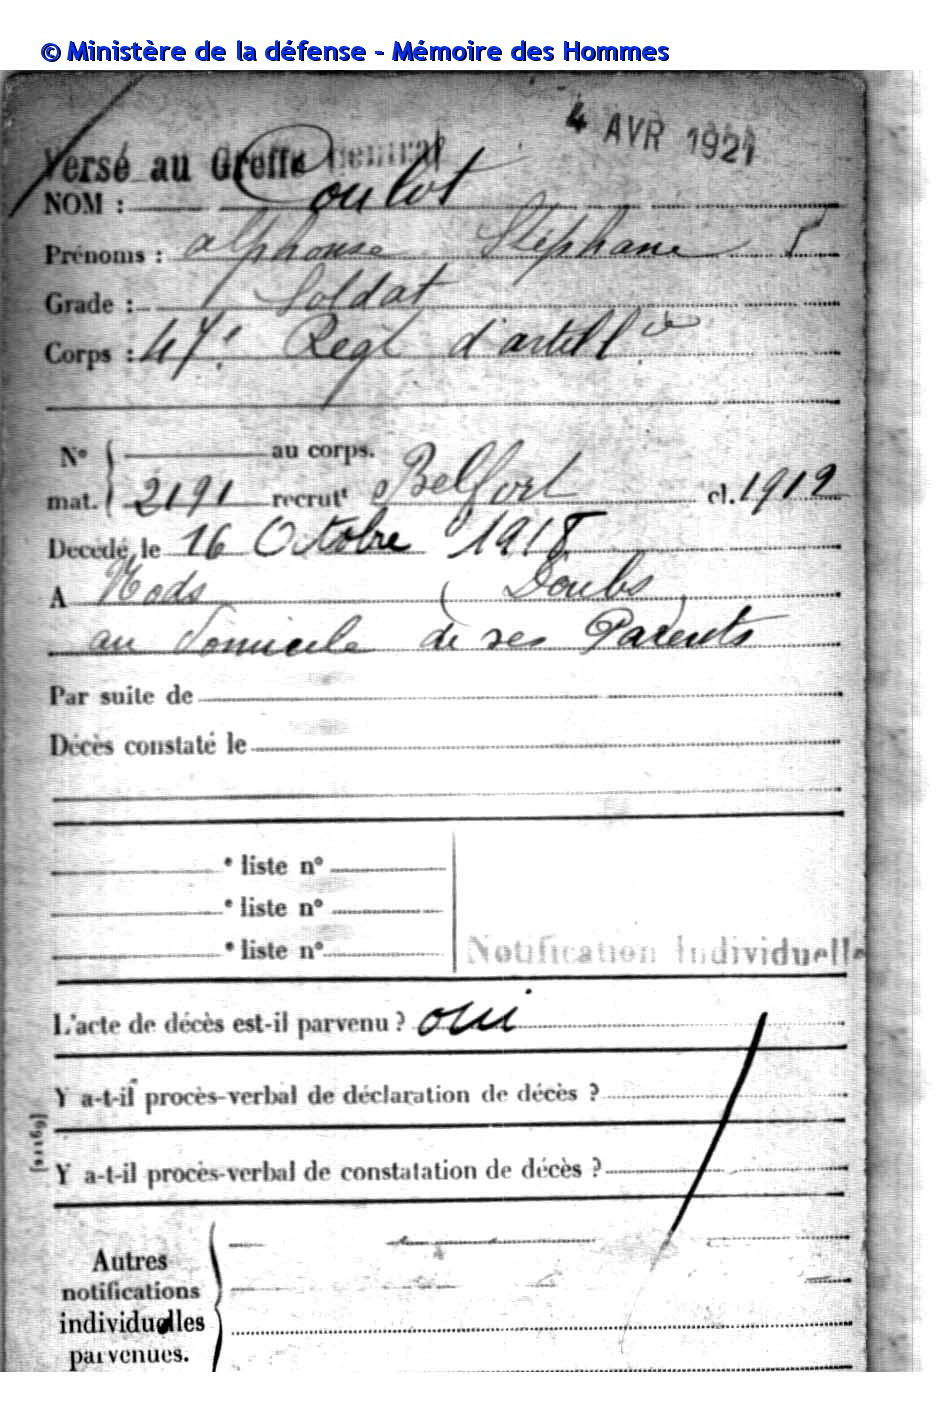 © Ministère de la défense - Mémoire des Hommes
4 AVR 1921
Versé au Greffe Central
NOM : Coulot
Prénoms : Alphonse Stéphane
Grade : Soldat
Corps : 47e Regt d'artillie
No au corps.
mat. 2191 recrutt Belfort cl. 1912
Décédé, le 16 Octobre 1918
A Nods (Doubs)
au Domicile de ses Parents
Par suite de
Décès constaté le
e liste no
e liste no
e liste no
Notification Individuelle
L'acte de décès est-il parvenu ? oui
Y a-t-il procès-verbal de déclaration de décès ?
Y a-t-il procès-verbal de constatation de décès ?
Autres
notifications
individuelles
parvenues.